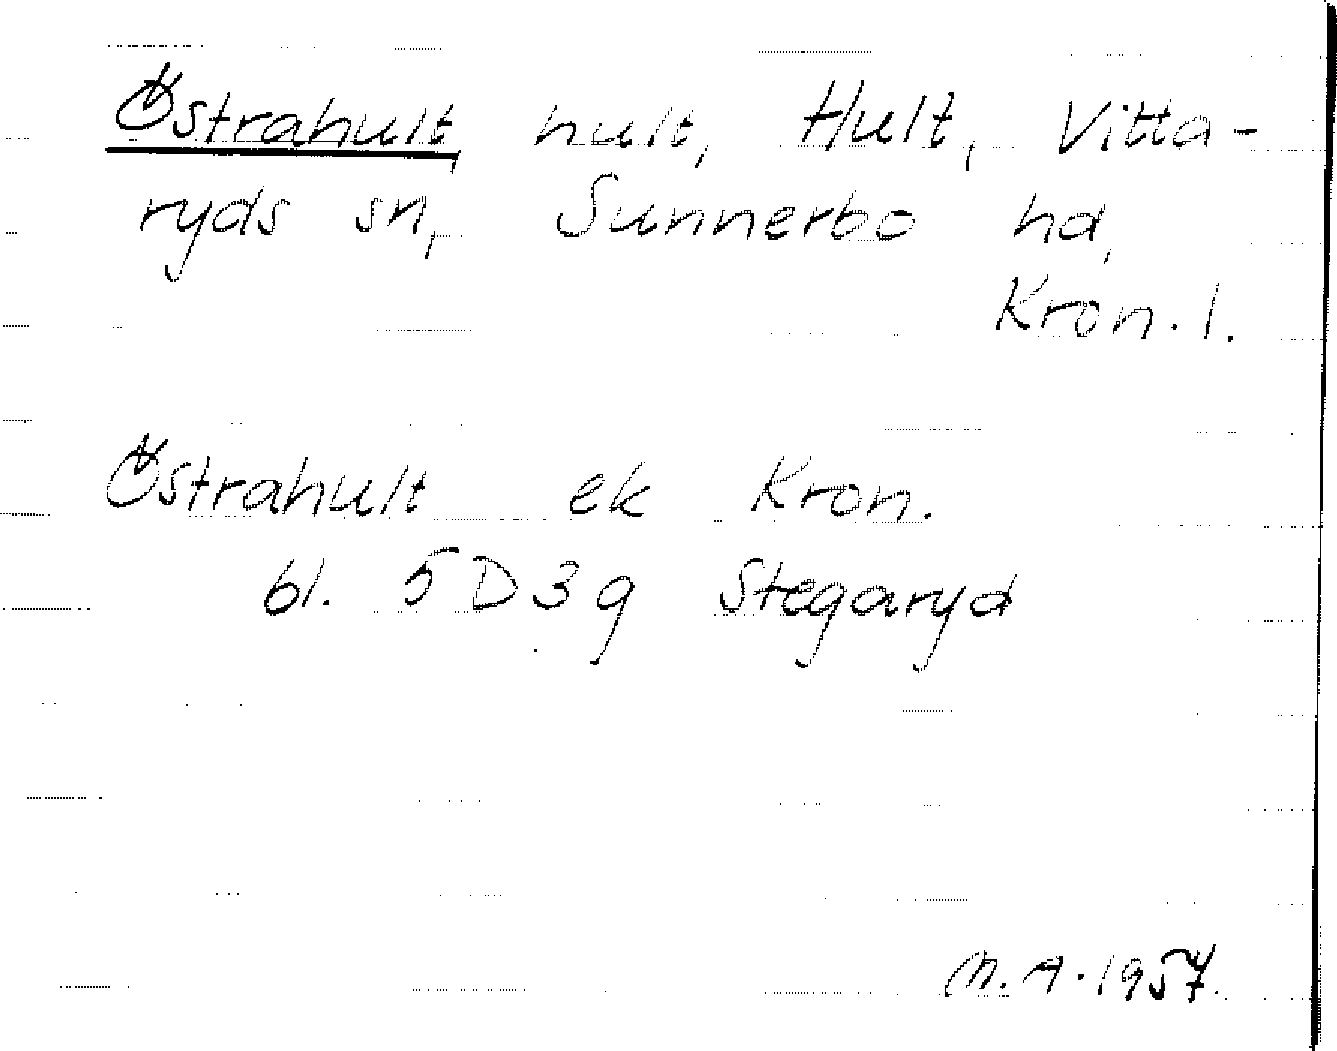 Östrahult, hult, Hult, Vitta-
ryds sn, Sunnerbo hd,
Kron. l.
Östrahult ek Kron.
bl. 5D3g Stegaryd
M.A. 1957.